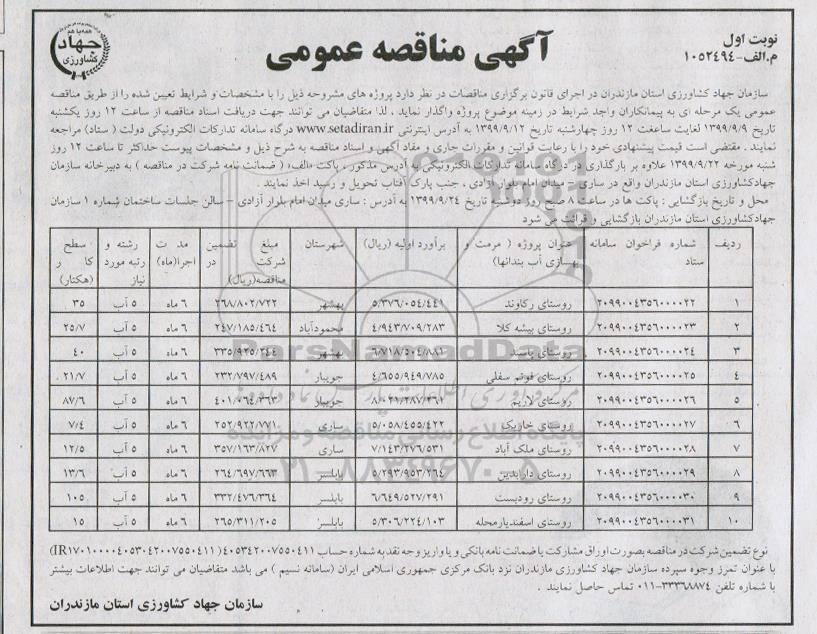 نوبت اول
م.الف-۱۰۵۲۴۹۴
آگهی مناقصه عمومی
همه با هم
جهاد
کشاورزی
سازمان جهاد کشاورزی استان مازندران در اجرای قانون برگزاری مناقصات در نظر دارد پروژه های مشروحه ذیل را با مشخصات و شرایط تعیین شده را از طریق مناقصه
عمومی یک مرحله ای به پیمانکاران واجد شرایط در زمینه موضوع پروژه واگذار نماید . لذا متقاضیان می توانند جهت دریافت اسناد مناقصه از ساعت ۱۲ روز یکشنبه
تاریخ ۱۳۹۹/۹/۹ لغایت ساعفت ۱۲ روز چهارشنبه تاریخ ۱۳۹۹/۹/۱۲ به آدرس اینترنتی www.setadiran.ir درگاه سامانه تدارکات الکترونیکی دولت ( ستاد) مراجعه
نمایند . مقتضی است قیمت پیشنهادی خود را با رعایت قوانین و مقررات جاری و مفاد آگهی و اسناد مناقصه به شرح ذیل و مشخصات پیوست حداکثر تا ساعت ۱۲ روز
شنبه مورخه ۱۳۹۹/۹/۲۲ علاوه بر بارگذاری در درگاه سامانه تدارکات الکترونیکی به آدرس مذکور ، پاکت «الف» ( ضمانت نامه شرکت در مناقصه ) به دبیرخانه سازمان
جهادکشاورزی استان مازندران واقع در ساری – میدان امام بلوار آزادی ، جنب پارک آفتاب تحویل و رسید اخذ نمایند .
محل و تاریخ بازگشایی : پاکت ها در ساعت ۸ صبح روز دوشنبه تاریخ ۱۳۹۹/۹/۲۴ به آدرس : ساری میدان امام بلوار آزادی – سالن جلسات ساختمان شماره ۱ سازمان
جهادکشاورزی استان مازندران بازگشایی و قرائت می شود
ردیف | شماره فراخوان سامانه ستاد | عنوان پروژه ( مرمت و بهسازی آب بندانها) | برآورد اولیه (ریال) | شهرستان | مبلغ تضمین شرکت در مناقصه(ریال) | مد ت اجرا(ماه) | رشته و رتبه مورد نیاز | سطح کا ر (هکتار)
۱ | ۲۰۹۹۰۰۴۳۵۶۰۰۰۰۲۲ | روستای رکاوند | ۵/۳۷۶/۰۵۴/۴۴۱ | بهشهر | ۲۶۸/۸۰۲/۷۲۲ | ۶ ماه | ۵ آب | ۳۵
۲ | ۲۰۹۹۰۰۴۳۵۶۰۰۰۰۲۳ | روستای بیشه کلا | ۴/۹۴۳/۷۰۹/۲۸۳ | محمودآباد | ۲۴۷/۱۸۵/۴۶۴ | ۶ ماه | ۵ آب | ۲۵/۷
۳ | ۲۰۹۹۰۰۴۳۵۶۰۰۰۰۲۴ | روستای پاسند | ۶/۷۱۸/۵۰۴/۸۸۱ | بهشهر | ۳۳۵/۹۲۵/۲۴۴ | ۶ ماه | ۵ آب | ۴۰
۴ | ۲۰۹۹۰۰۴۳۵۶۰۰۰۰۲۵ | روستای فوتم سفلی | ۴/۶۵۵/۹۴۹/۷۸۵ | جویبار | ۲۳۲/۷۹۷/۴۸۹ | ۶ ماه | ۵ آب | ۲۱/۷
۵ | ۲۰۹۹۰۰۴۳۵۶۰۰۰۰۲۶ | روستای لاریم | ۸/۰۲۱/۲۸۷/۲۶۱ | جویبار | ۴۰۱/۰۶۴/۳۶۳ | ۶ ماه | ۵ آب | ۸۷/۶
۶ | ۲۰۹۹۰۰۴۳۵۶۰۰۰۰۲۷ | روستای خاریک | ۵/۰۵۸/۴۵۵/۴۲۲ | ساری | ۲۵۲/۹۲۲/۷۷۱ | ۶ ماه | ۵ آب | ۷/۴
۷ | ۲۰۹۹۰۰۴۳۵۶۰۰۰۰۲۸ | روستای ملک آباد | ۷/۱۴۳/۲۷۶/۵۳۱ | ساری | ۳۵۷/۱۶۳/۸۲۷ | ۶ ماه | ۵ آب | ۱۲/۵
۸ | ۲۰۹۹۰۰۴۳۵۶۰۰۰۰۲۹ | روستای درابدین | ۵/۲۹۳/۹۵۳/۲۶۴ | بابلسر | ۲۶۴/۶۹۷/۶۶۳ | ۶ ماه | ۵ آب | ۱۳/۶
۹ | ۲۰۹۹۰۰۴۳۵۶۰۰۰۰۳۰ | روستای رودبست | ۶/۶۴۹/۵۲۷/۲۹۱ | بابلسر | ۳۳۲/۴۷۶/۳۶۴ | ۶ ماه | ۵ آب | ۱۰۵
۱۰ | ۲۰۹۹۰۰۴۳۵۶۰۰۰۰۳۱ | روستای اسفندیارمحله | ۵/۳۰۶/۲۲۴/۱۰۳ | بابلسر | ۲۶۵/۳۱۱/۲۰۵ | ۶ ماه | ۵ آب | ۱۵
ParsNamadData
پایگاه اطلاع رسانی مناقصه و مزایده
۰۲۱-۸۸۳۴۹۶۷۰-۵
نوع تضمین شرکت در مناقصه بصورت اوراق مشارکت یا ضمانت نامه بانکی و یا واریز وجه نقد به شماره حساب ۴۰۵۳۴۲۰۰۷۵۵۰۴۱۱ (IR۱۷۰۱۰۰۰۰۴۰۵۳۰۴۲۰۰۷۵۵۰۴۱۱)
با عنوان تمرز وجوه سپرده سازمان جهاد کشاورزی مازندران نزد بانک مرکزی جمهوری اسلامی ایران (سامانه نسیم ) می باشد متقاضیان می توانند جهت اطلاعات بیشتر
با شماره تلفن ۳۳۳۶۸۸۷۴-۰۱۱ تماس حاصل نمایند .
سازمان جهاد کشاورزی استان مازندران